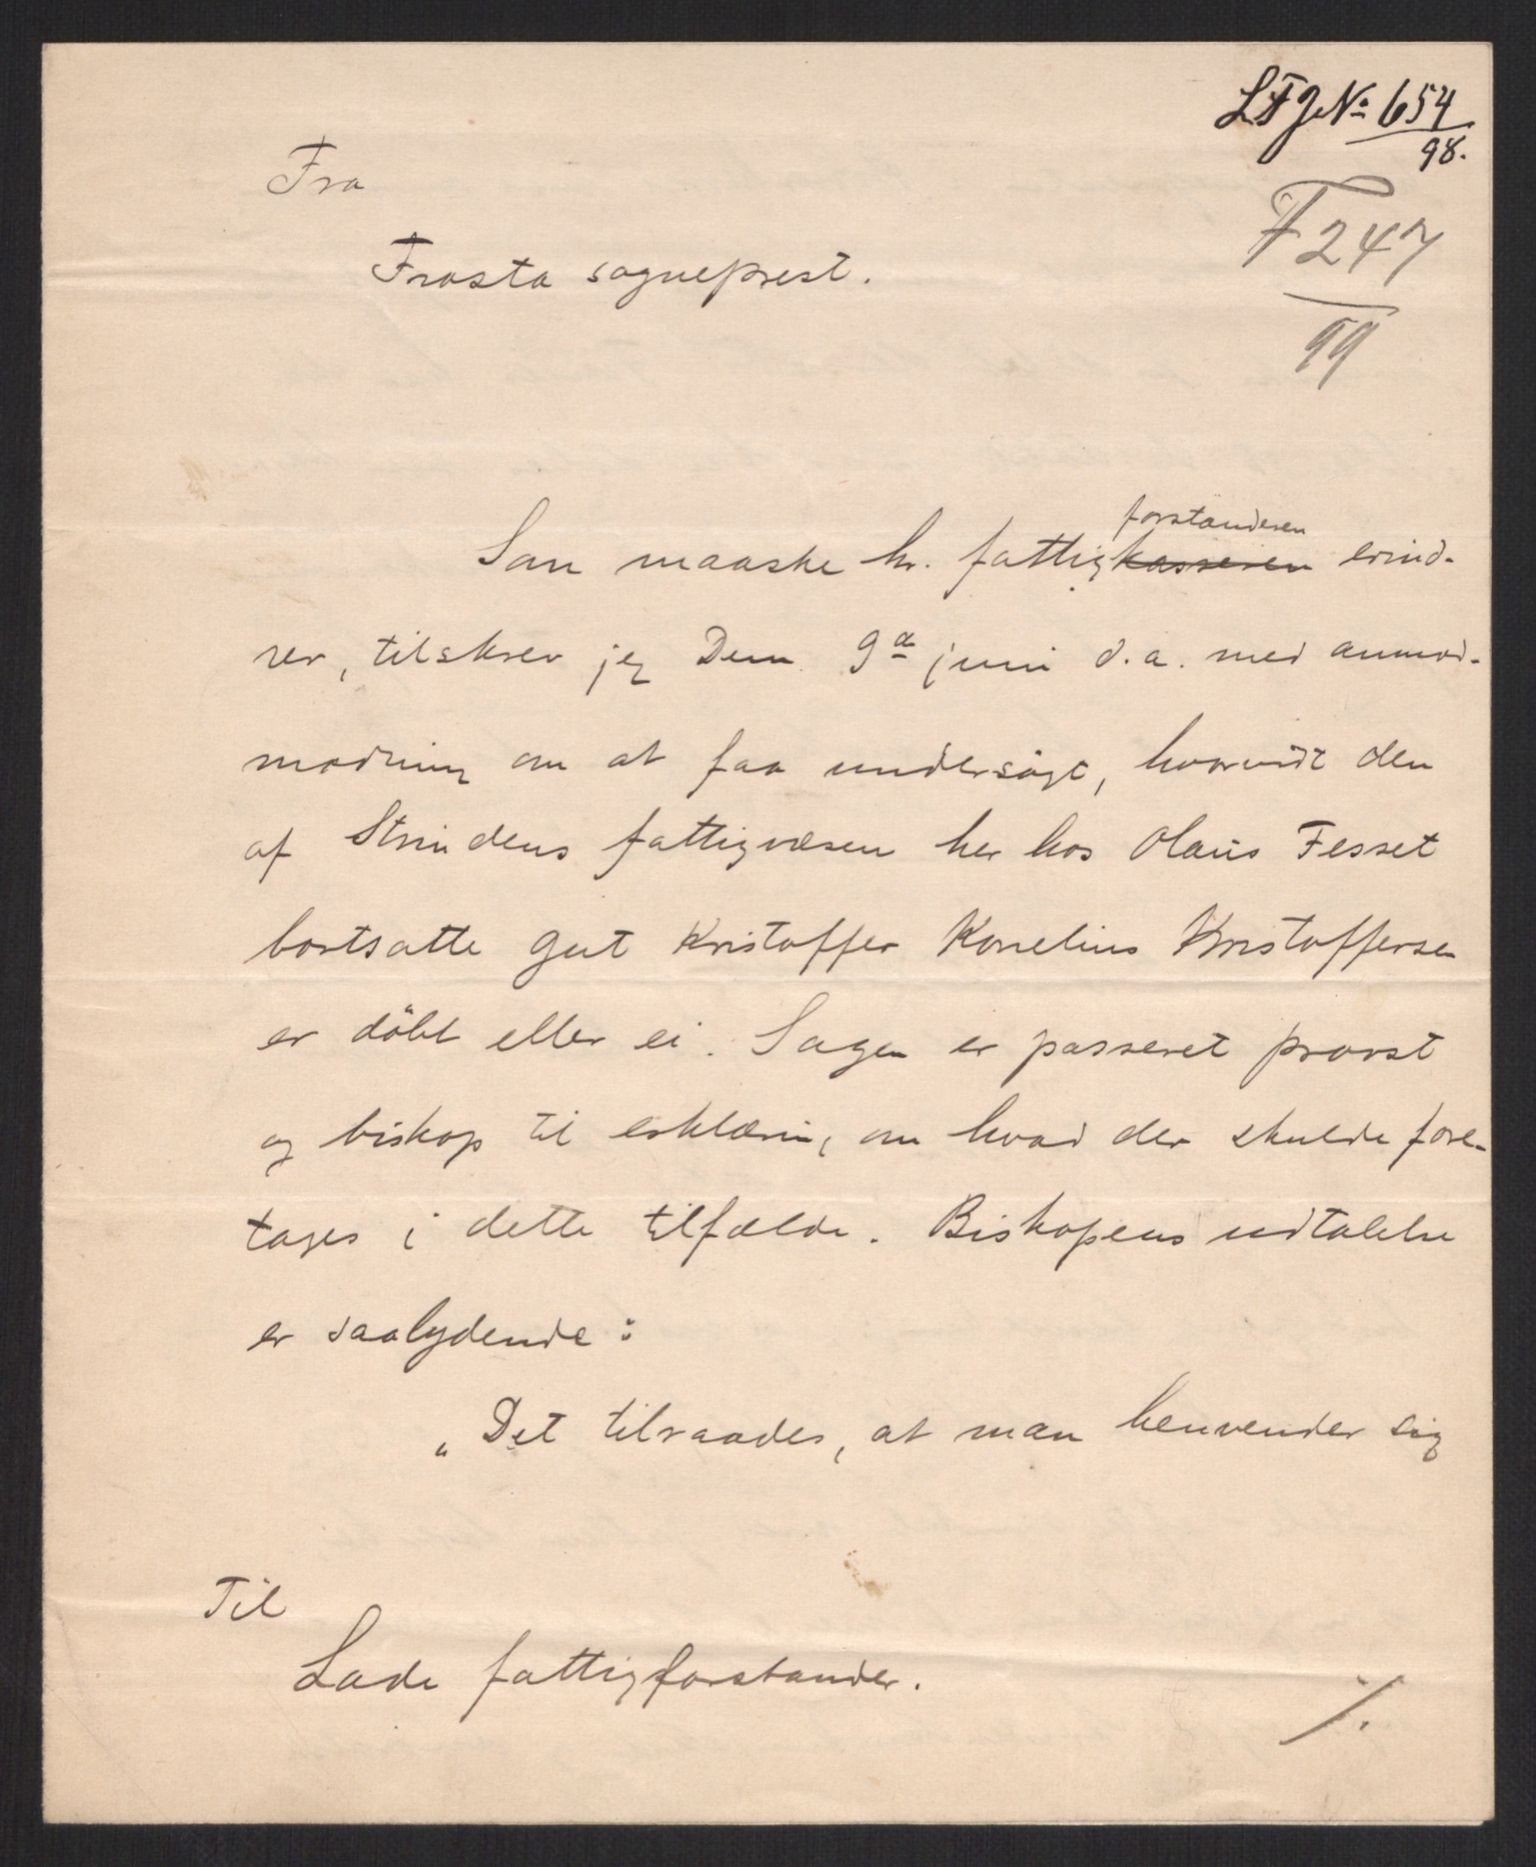 L F J. No 654
98.
F 247
99
Fra
Frosta sogneprest.
forstanderen
Som maaske hr. fattigkasseren erind-
rer, tilskrev jeg Dem 9de juni d. a. med anmod-
modning om at faa undersögt, hvorvidt den
af Strindens fattigvæsen her hos Olaus Fesset
bortsatte gut Kristoffer Kornelius Kristoffersen
er döbt eller ei. Sagen er passeret provst
og biskop til erklæring om hvad der skulde fore-
tages i dette tilfælde. Biskopens udtalelse
er saalydende:
„Det tilraades, at man henvender sig
Til
Lade fattigforstander.
./.